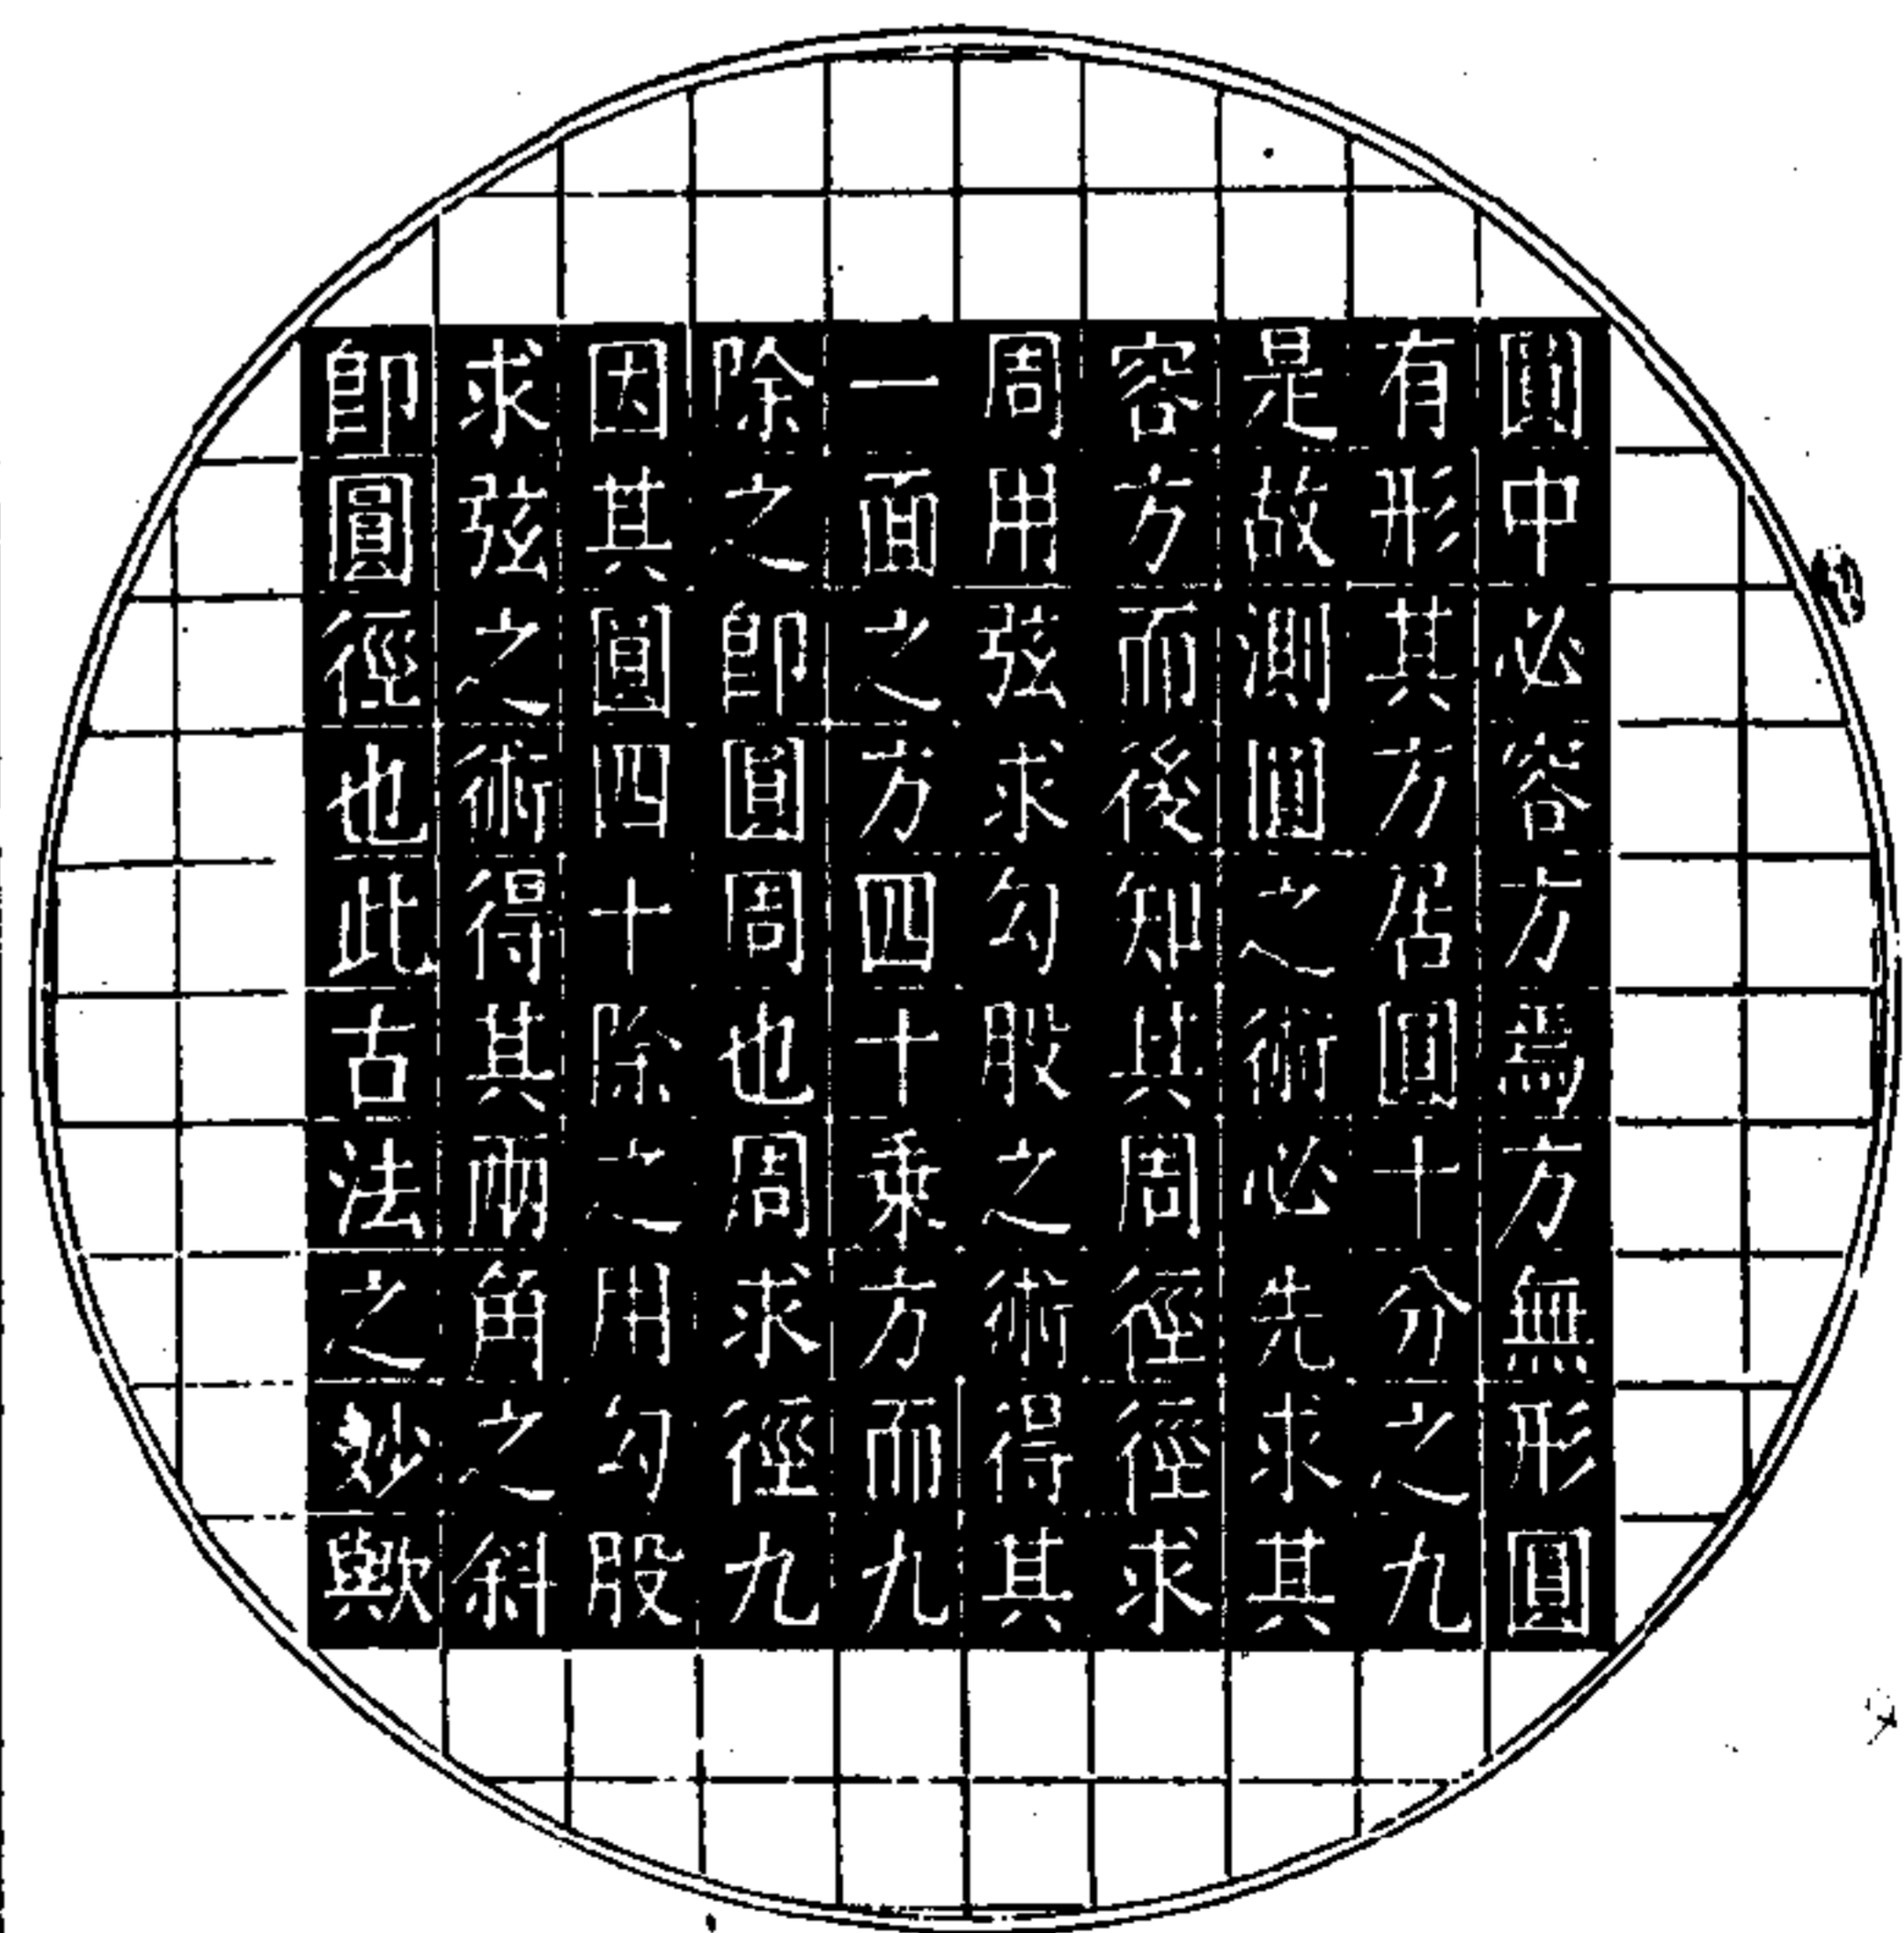 圓中必容方焉方無形圓
有形其方居圓十分之九
是故測圓之術必先求其
容方而後知其周徑徑求
周用弦求勾股之術得其
一面之方四十乘方而九
除之卽圓周也周求徑九
因其圓四十除之用勾股
求弦之術得其兩角之斜
卽圓徑也此古法之妙歟